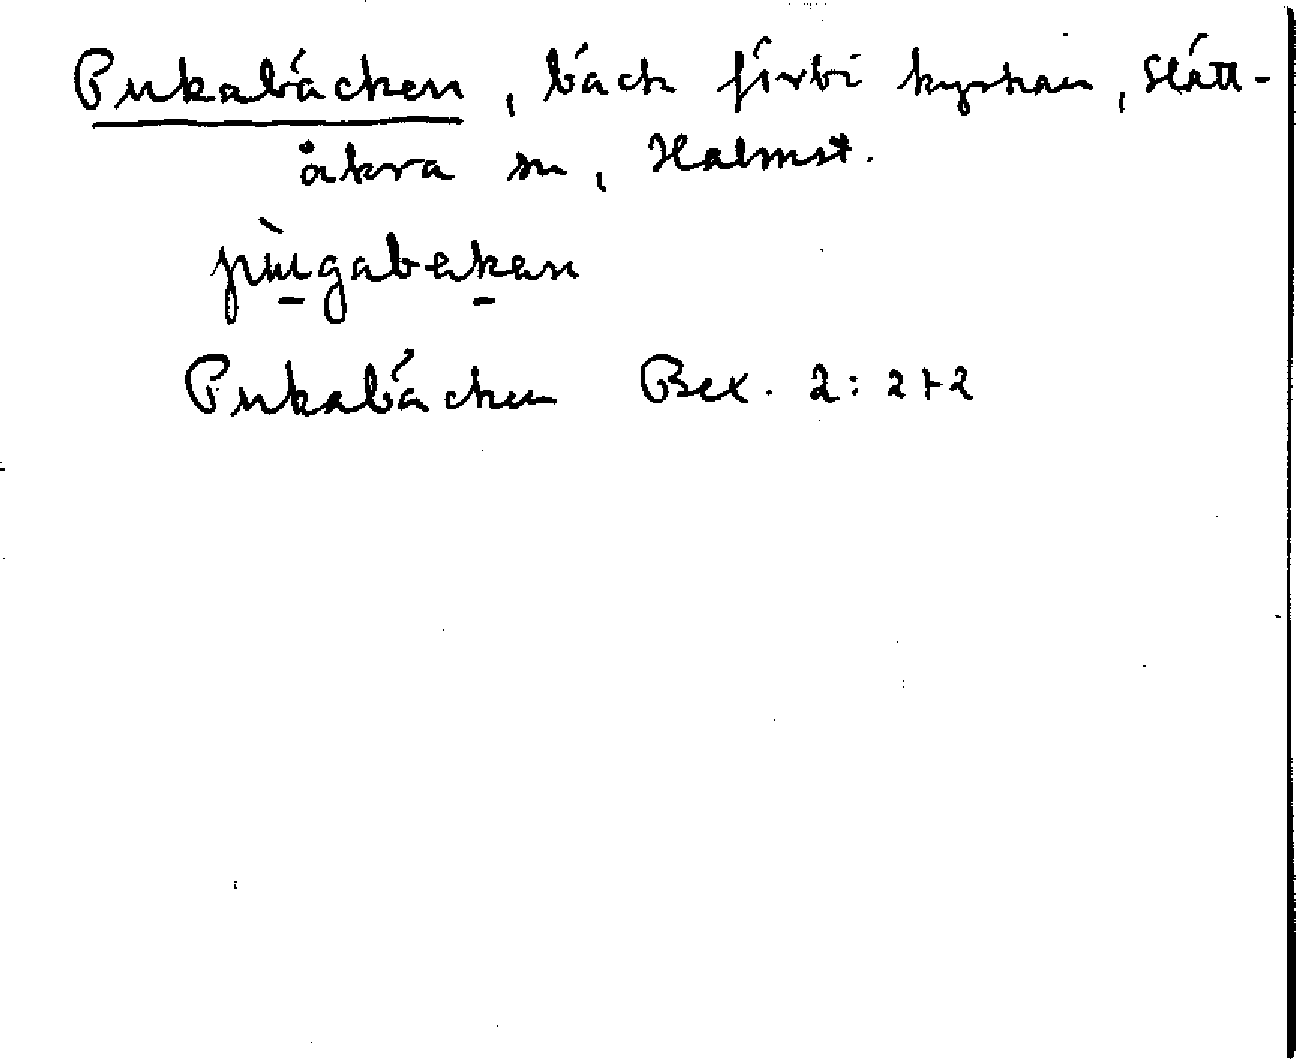 Pukabäcken, bäck förbi kyrkan, Slätt-
åkra sn, Halmst.
pùgabekan
Pukabäcken Bex. 2: 272